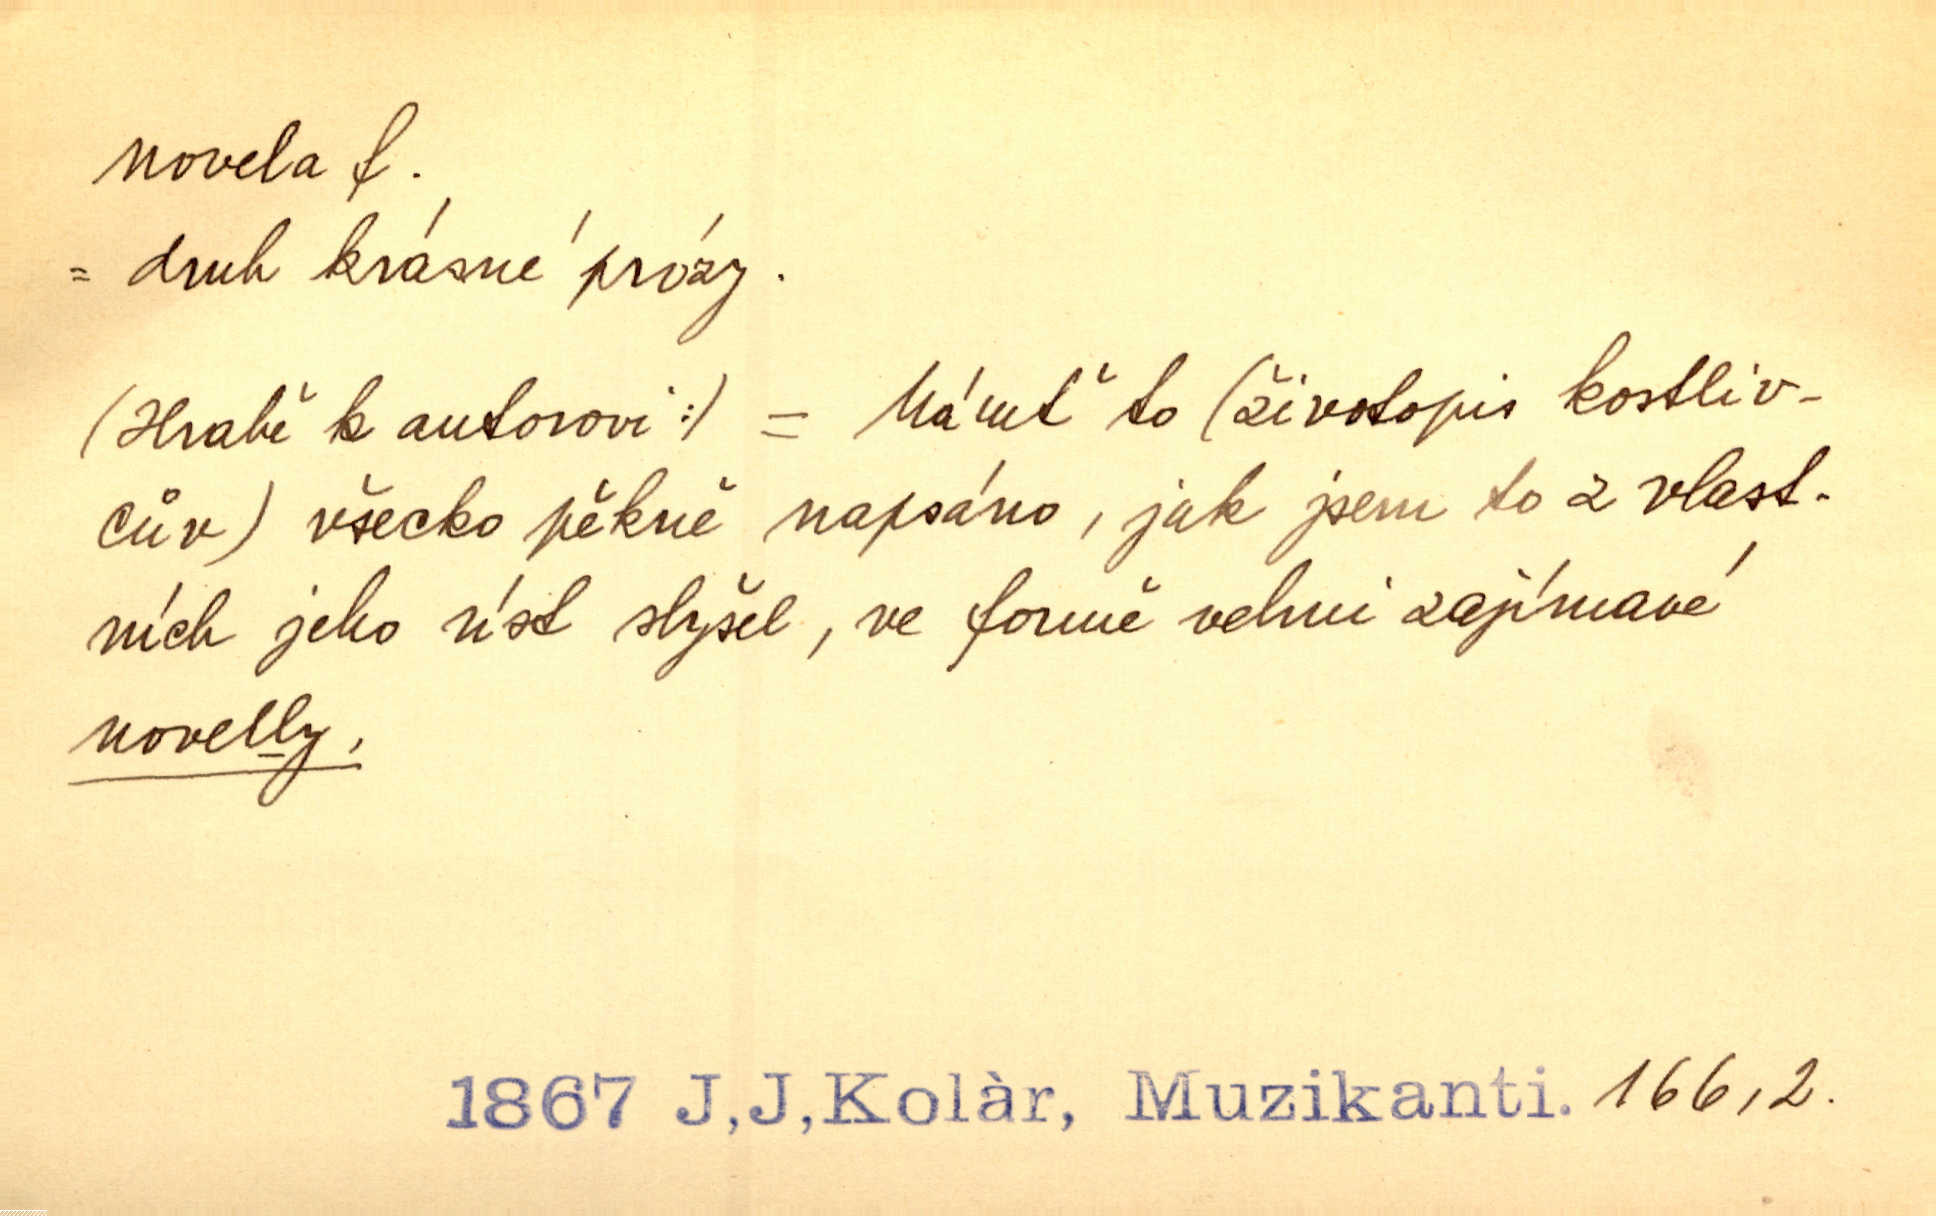 novela f.
= druh krásné prózy.
(Hrabě k autorovi:) = Mámť to (životopis kostliv-
cův) všecko pěkně napsáno, jak jsem to z vlast-
ních jeho úst slyšel, ve formě velmi zajímavé
novelly,
1867 J,J,Kolàr, Muzikanti. 166,2.